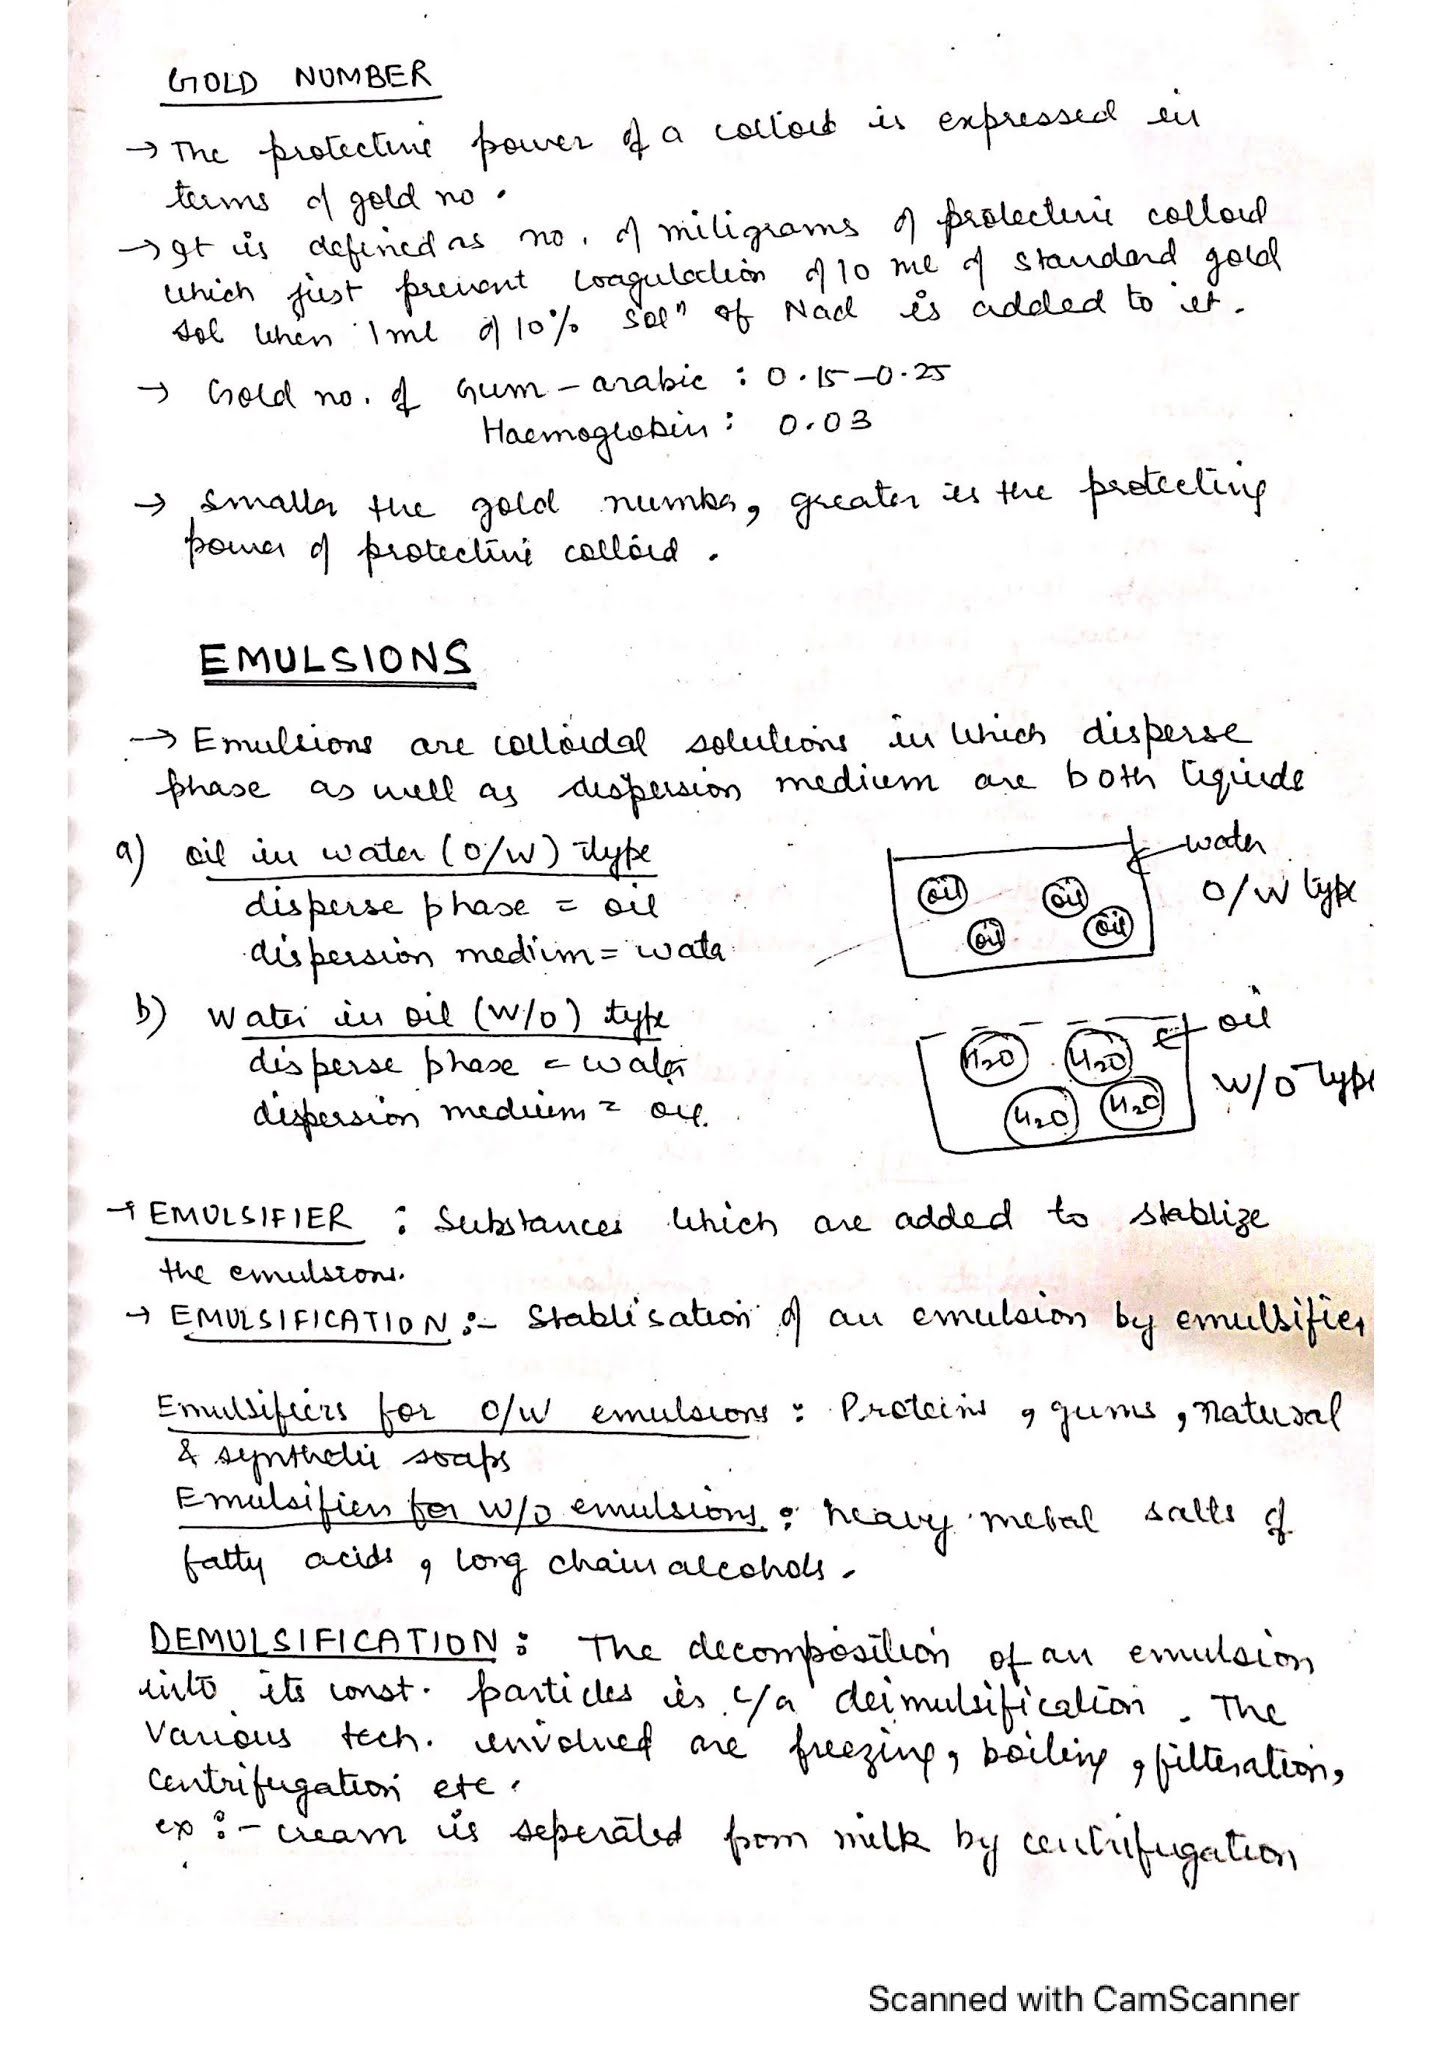 GOLD NUMBER
→ The protective power of a colloid is expressed in
terms of gold no.
→ It is defined as no. of miligrams of protective colloid
which just prevent coagulation of 10 ml of standard gold
sol when 1 ml of 10% solⁿ of NaCl is added to it.
→ Gold no. of Gum-arabic : 0.15-0.25
Haemoglobin : 0.03
→ smaller the gold number, greater is the protecting
power of protective colloid.
EMULSIONS
→ Emulsions are colloidal solutions in which disperse
phase as well as dispersion medium are both liquids
a) oil in water (O/W) type
disperse phase = oil
dispersion medium = water
water
O/W type
oil oil
oil oil
b) water in oil (W/O) type
disperse phase = water
dispersion medium = oil.
oil
W/O type
H₂O H₂O
H₂O H₂O
→ EMULSIFIER : Substances which are added to stablize
the emulsions.
→ EMULSIFICATION :- Stablisation of an emulsion by emulsifier
Emulsifiers for O/W emulsions : Proteins, gums, natural
& synthetic soaps
Emulsifiers for W/O emulsions : heavy metal salts of
fatty acids, long chain alcohols.
DEMULSIFICATION : The decomposition of an emulsion
into its const. particles is c/a deimulsification. The
various tech. involved are freezing, boiling, filteration,
centrifugation etc.
ex :- cream is seperated from milk by centrifugation
Scanned with CamScanner